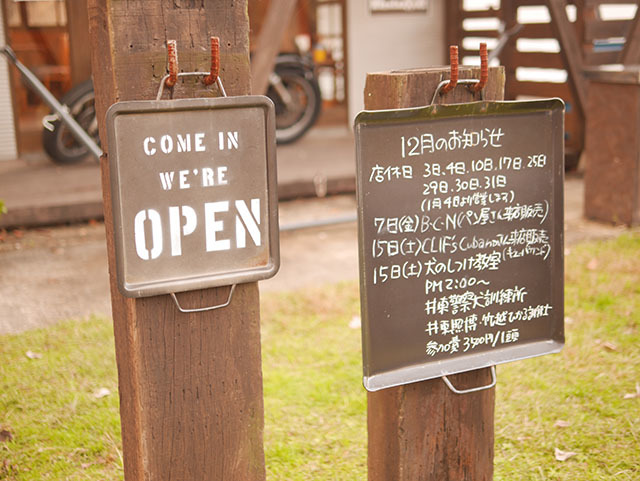 COME IN
WE'RE
OPEN
12月のお知らせ
店休日 3日.4日.10日.17日.25日
29日.30日.31日
(1月4日より営業してます)
7日(金)B・C・N(パン屋さん来店販売)
15日(土)CLIFs Cubanoさん来店販売
(キューバサンド)
15日(土)犬のしつけ教室
PM 2:00〜
井東警察犬訓練所
井東熙博・竹越ひかる訓練士
参加費 3500円/1頭